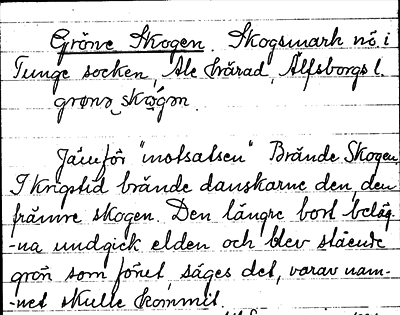 Gröne Skogen. Skogsmark nö i
Tunge socken, Ale härad, Älfsborgs l.
grønə skǫ́gən.
Jämför "motsatsen" Brände Skogen
I krigstid brände danskarne den, den
främre skogen. Den längre bort beläg-
-na undgick elden och blev stående
grön som förut, säges det, varav nam-
-net skulle kommit.